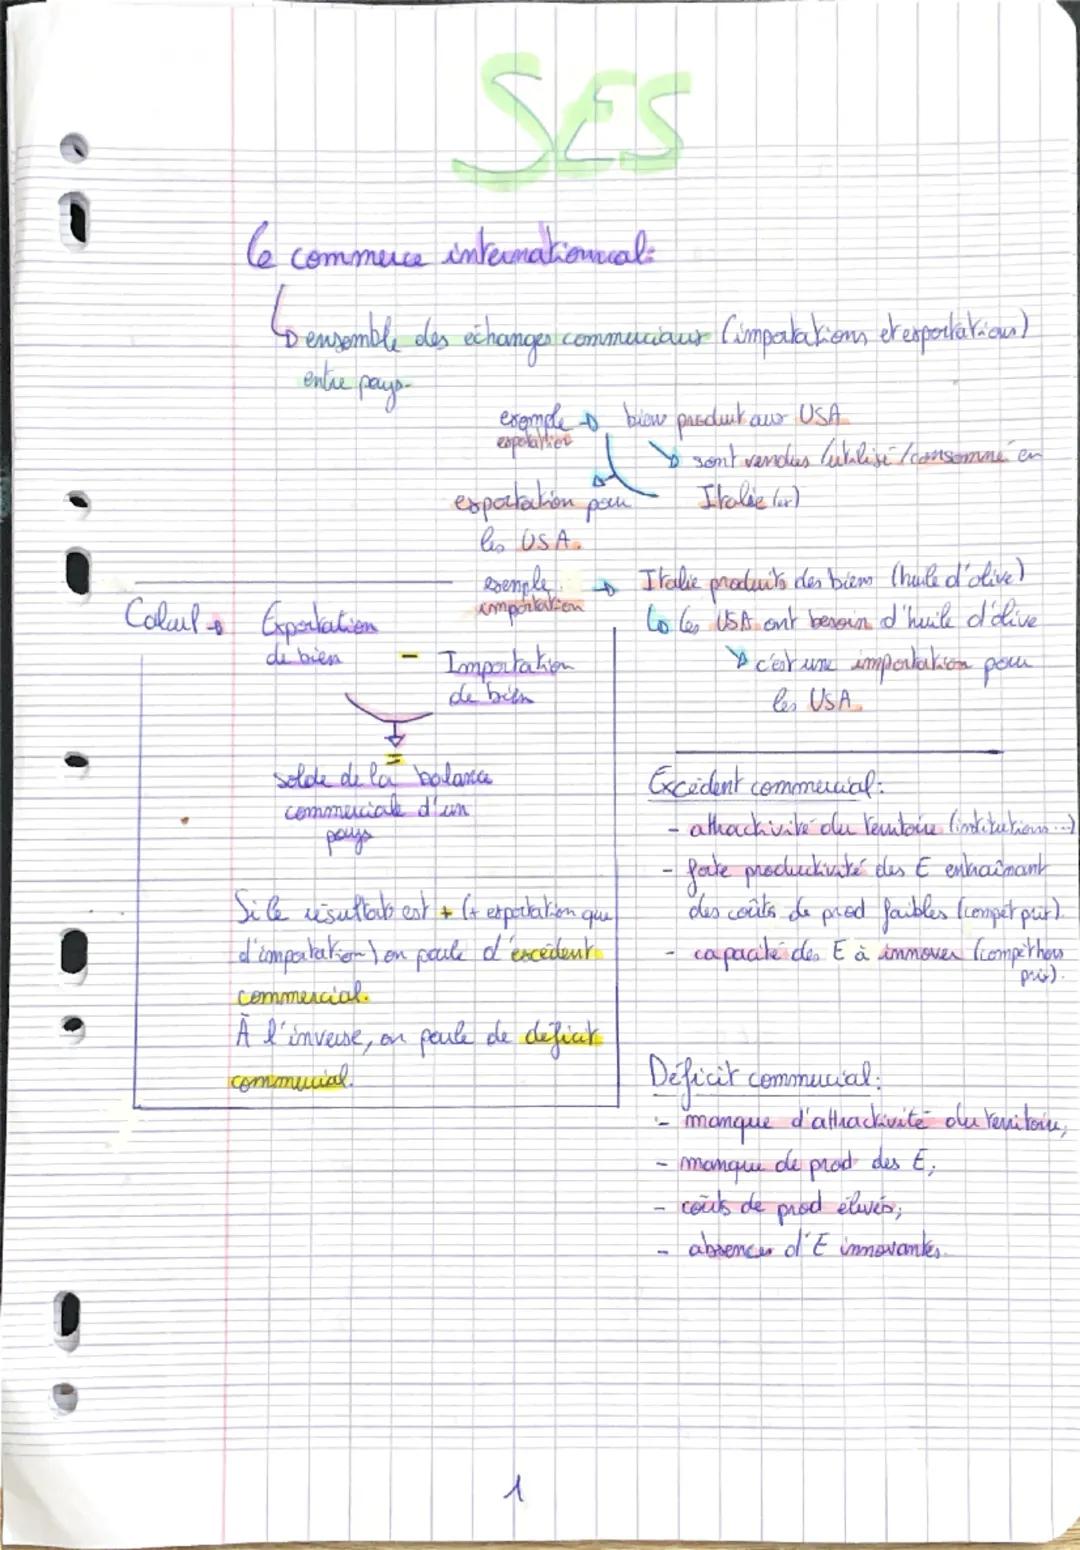 SES
Le commerce international:
ensemble des échanges commerciaux (importations et exportations)
entre pays.
exemple → bien produit aux USA
exportation
sont vendus /utilisé/consommé en
Italie
exportation pour
les USA.
exemple → Italie produits des biens (huile d'olive)
importation
les USA ont besoin d'huile d'olive
c'est une importation pour
les USA.
Calcul → Exportation
de bien
- Importation
de bien
=
solde de la balance
commerciale d'un
pays
Si le résultat est + (+ exportation que
d'importation) on parle d'excédent
commercial.
À l'inverse, on parle de déficit
commercial.
Excédent commercial:
- attractivité du territoire (institutions...)
- forte productivité des E entraînant
des coûts de prod faibles (compét prix).
- capacité des E à innover (compét hors
prix).
Déficit commercial:
- manque d'attractivité du territoire;
- manque de prod des E;
- coûts de prod élevés;
- absences d'E innovantes.
1